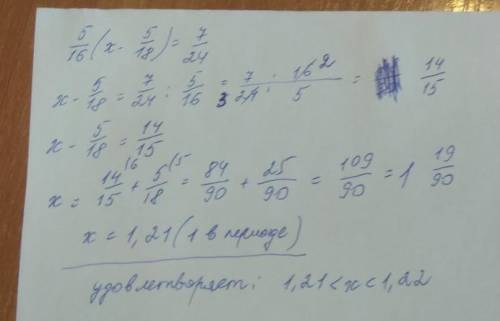 5/16 (x - 5/18) = 7/24
x - 5/18 = 7/24 : 5/16 = 7 · 16 2 / 3 24 · 5 = 14/15
x - 5/18 = 14/15
x = 14/15 (6 + 5/18 (5 = 84/90 + 25/90 = 109/90 = 1 19/90
x = 1,21 (1 в периоде)
удовлетворяет: 1,21 < x < 1,22